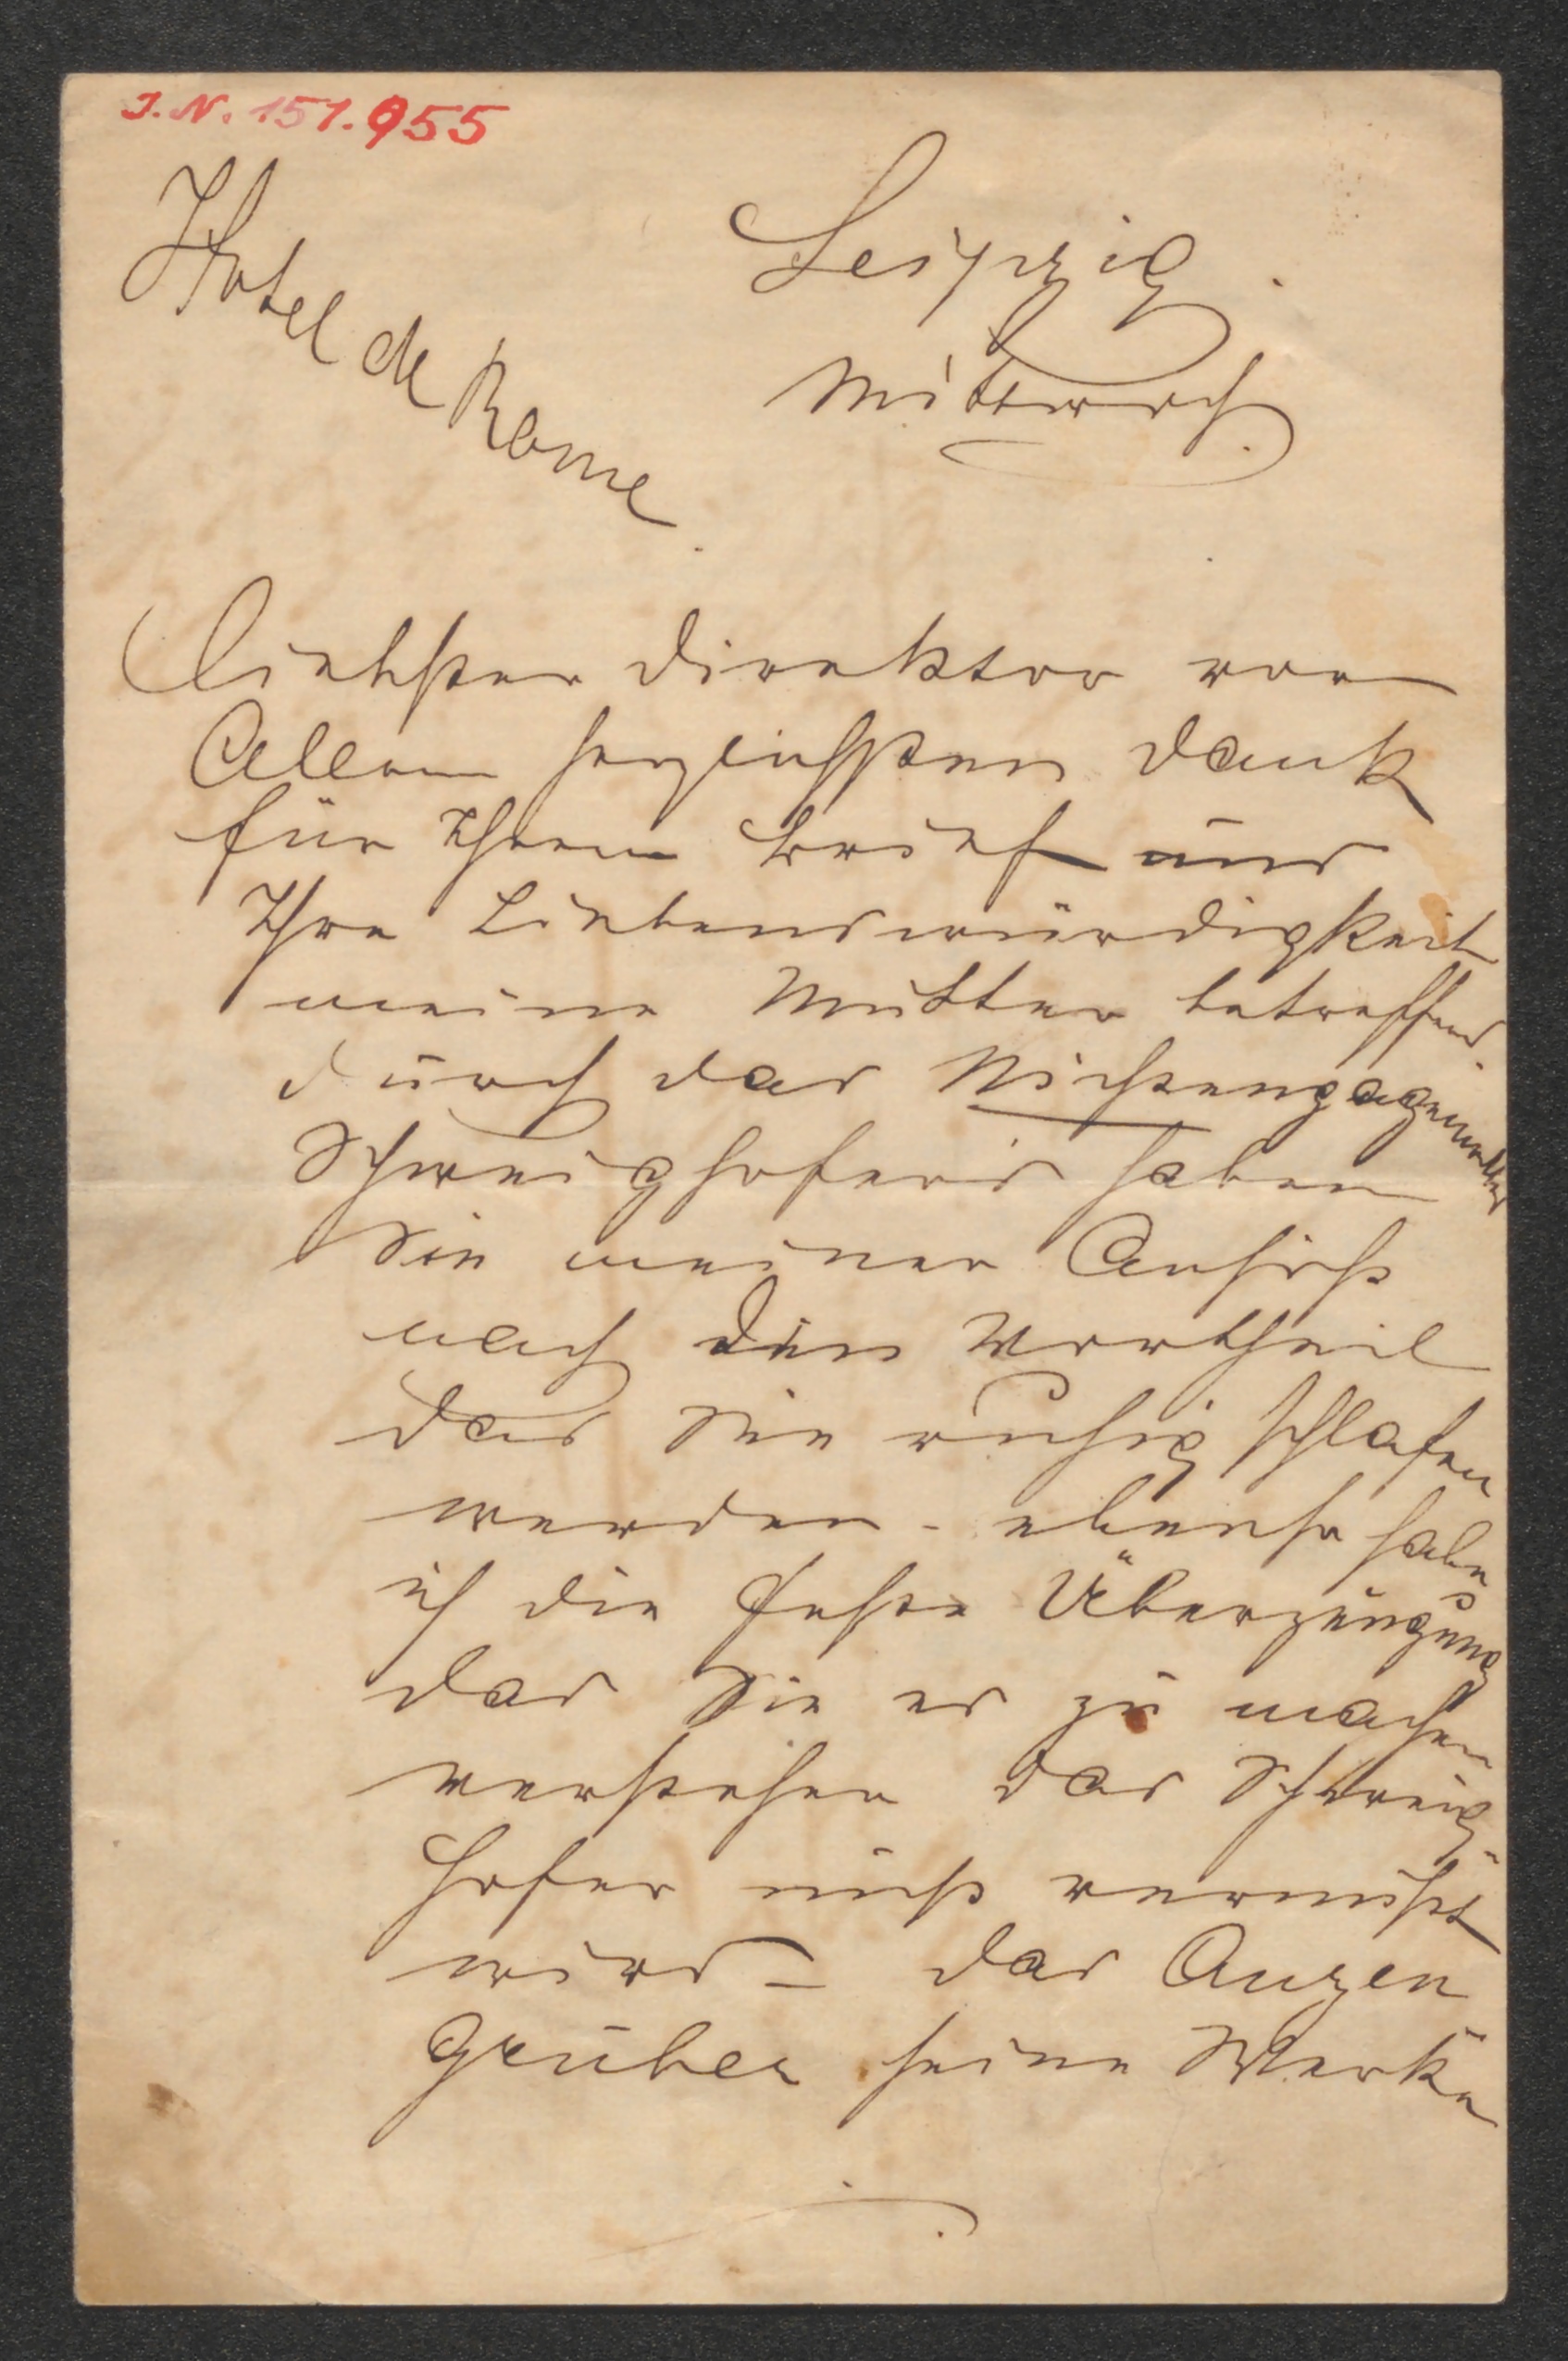 J.N. 151.955
Hotel de Rome.
Leipzig.
Mittwoch.
Liebster Direktor vor
Allem herzlichsten Dank
für Ihren Brief und
Ihre Liebenswürdigkeit
meine Mutter betreffend.
durch das Nichtengagement
Schweighofers haben
Sie meiner Ansicht
nach den Vortheil
das Sie ruhig schlafen
werden - ebenso habe
ich die feste Überzeugung
das Sie es zu machen
verstehen das Schweig-
hofer nicht vermißt
wird - das Anzen
gruber seine Werke